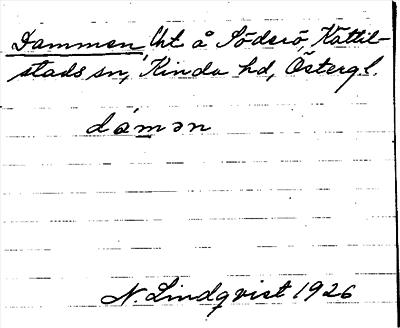 Dammen, Uht å Söderö, Kättil-
stads sn, Kinda hd, Östergl.
dámən
N. Lindqvist 1926